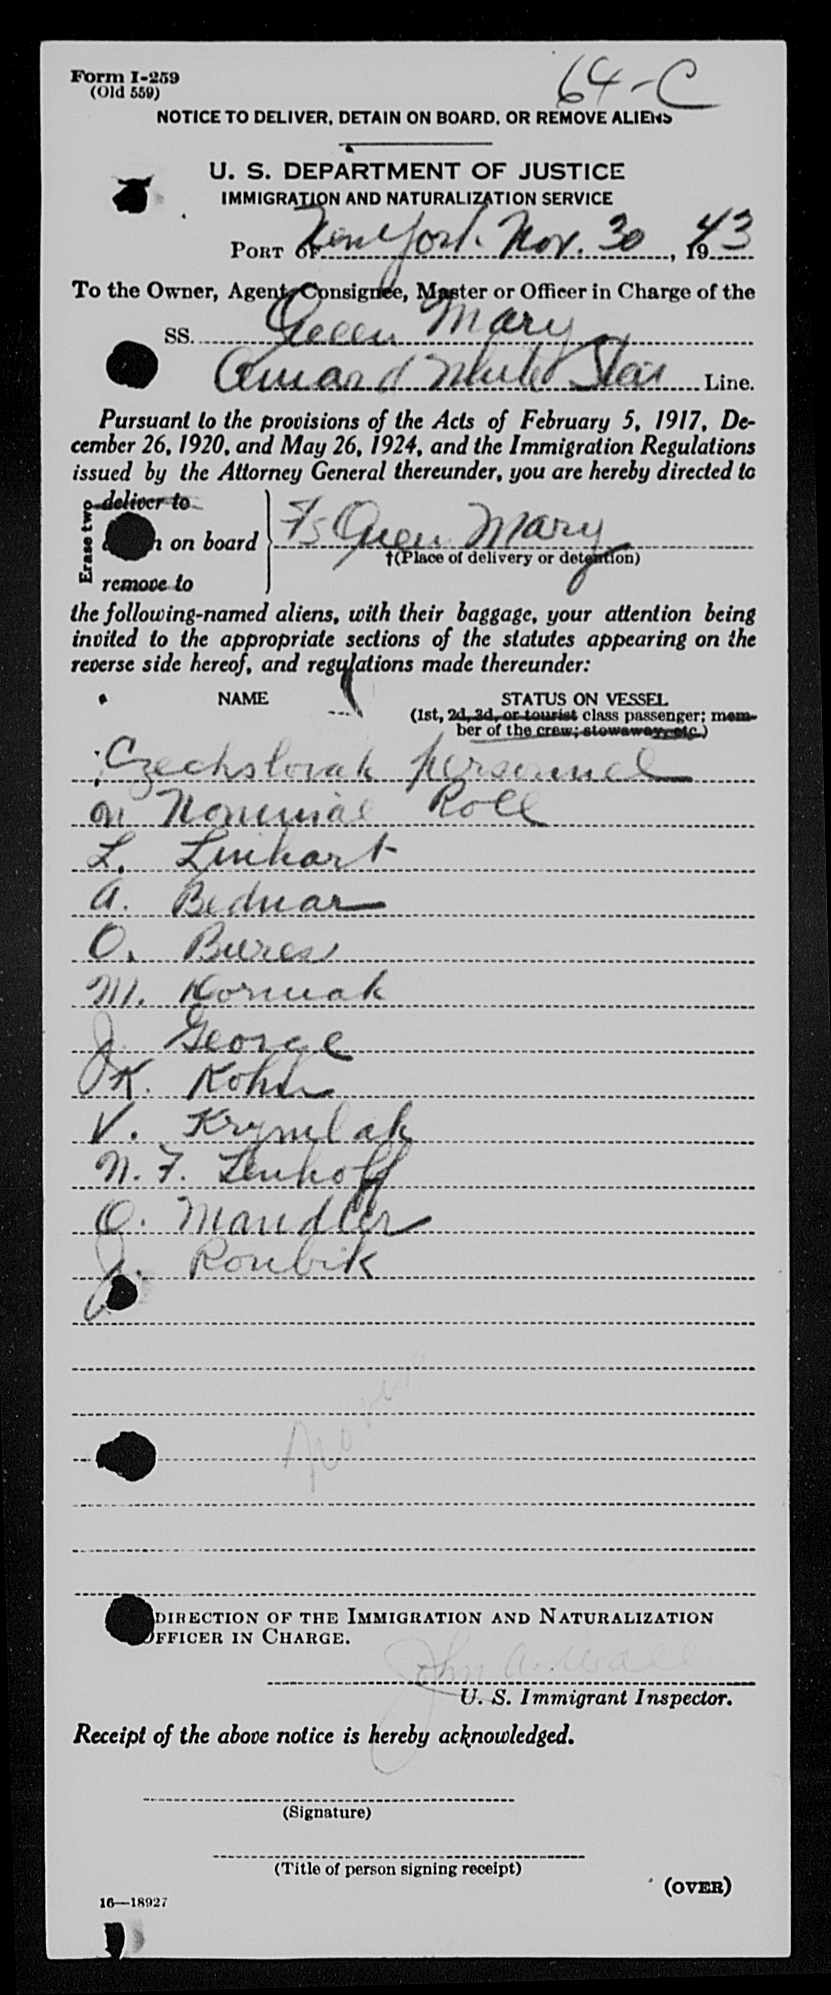 Form I-259
(Old 559)
64-C
NOTICE TO DELIVER, DETAIN ON BOARD, OR REMOVE ALIENS
U. S. DEPARTMENT OF JUSTICE
IMMIGRATION AND NATURALIZATION SERVICE
PORT OF New York. Nov. 30, 1943
To the Owner, Agent, Consignee, Master or Officer in Charge of the
SS. Queen Mary
Cunard White Star Line.
Pursuant to the provisions of the Acts of February 5, 1917, De-
cember 26, 1920, and May 26, 1924, and the Immigration Regulations
issued by the Attorney General thereunder, you are hereby directed to
Erase two
deliver to
on board
remove to
Queen Mary
†(Place of delivery or detention)
the following-named aliens, with their baggage, your attention being
invited to the appropriate sections of the statutes appearing on the
reverse side hereof, and regulations made thereunder:
NAME STATUS ON VESSEL
(1st, 2d, 3d, or tourist class passenger; mem-
ber of the crew; stowaway, etc.)
Czechslovak personnel
on Nominal Roll
L. Linhart
A. Bednar
O. Bures
M. Kornuak
J. George
K. Kohn
V. Krymlak
N. F. Lenhoff
O. Mandler
J. Roubik
DIRECTION OF THE IMMIGRATION AND NATURALIZATION
OFFICER IN CHARGE.
John A. Wall
U. S. Immigrant Inspector.
Receipt of the above notice is hereby acknowledged.
(Signature)
(Title of person signing receipt)
(OVER)
16—18927